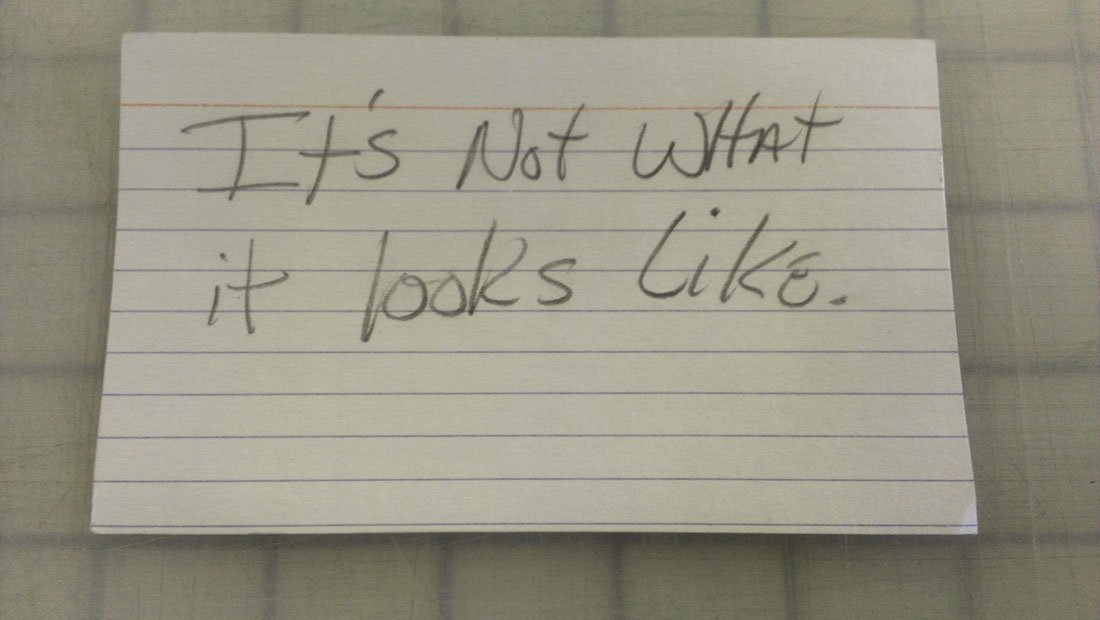 It's Not WHAt
it looks like.